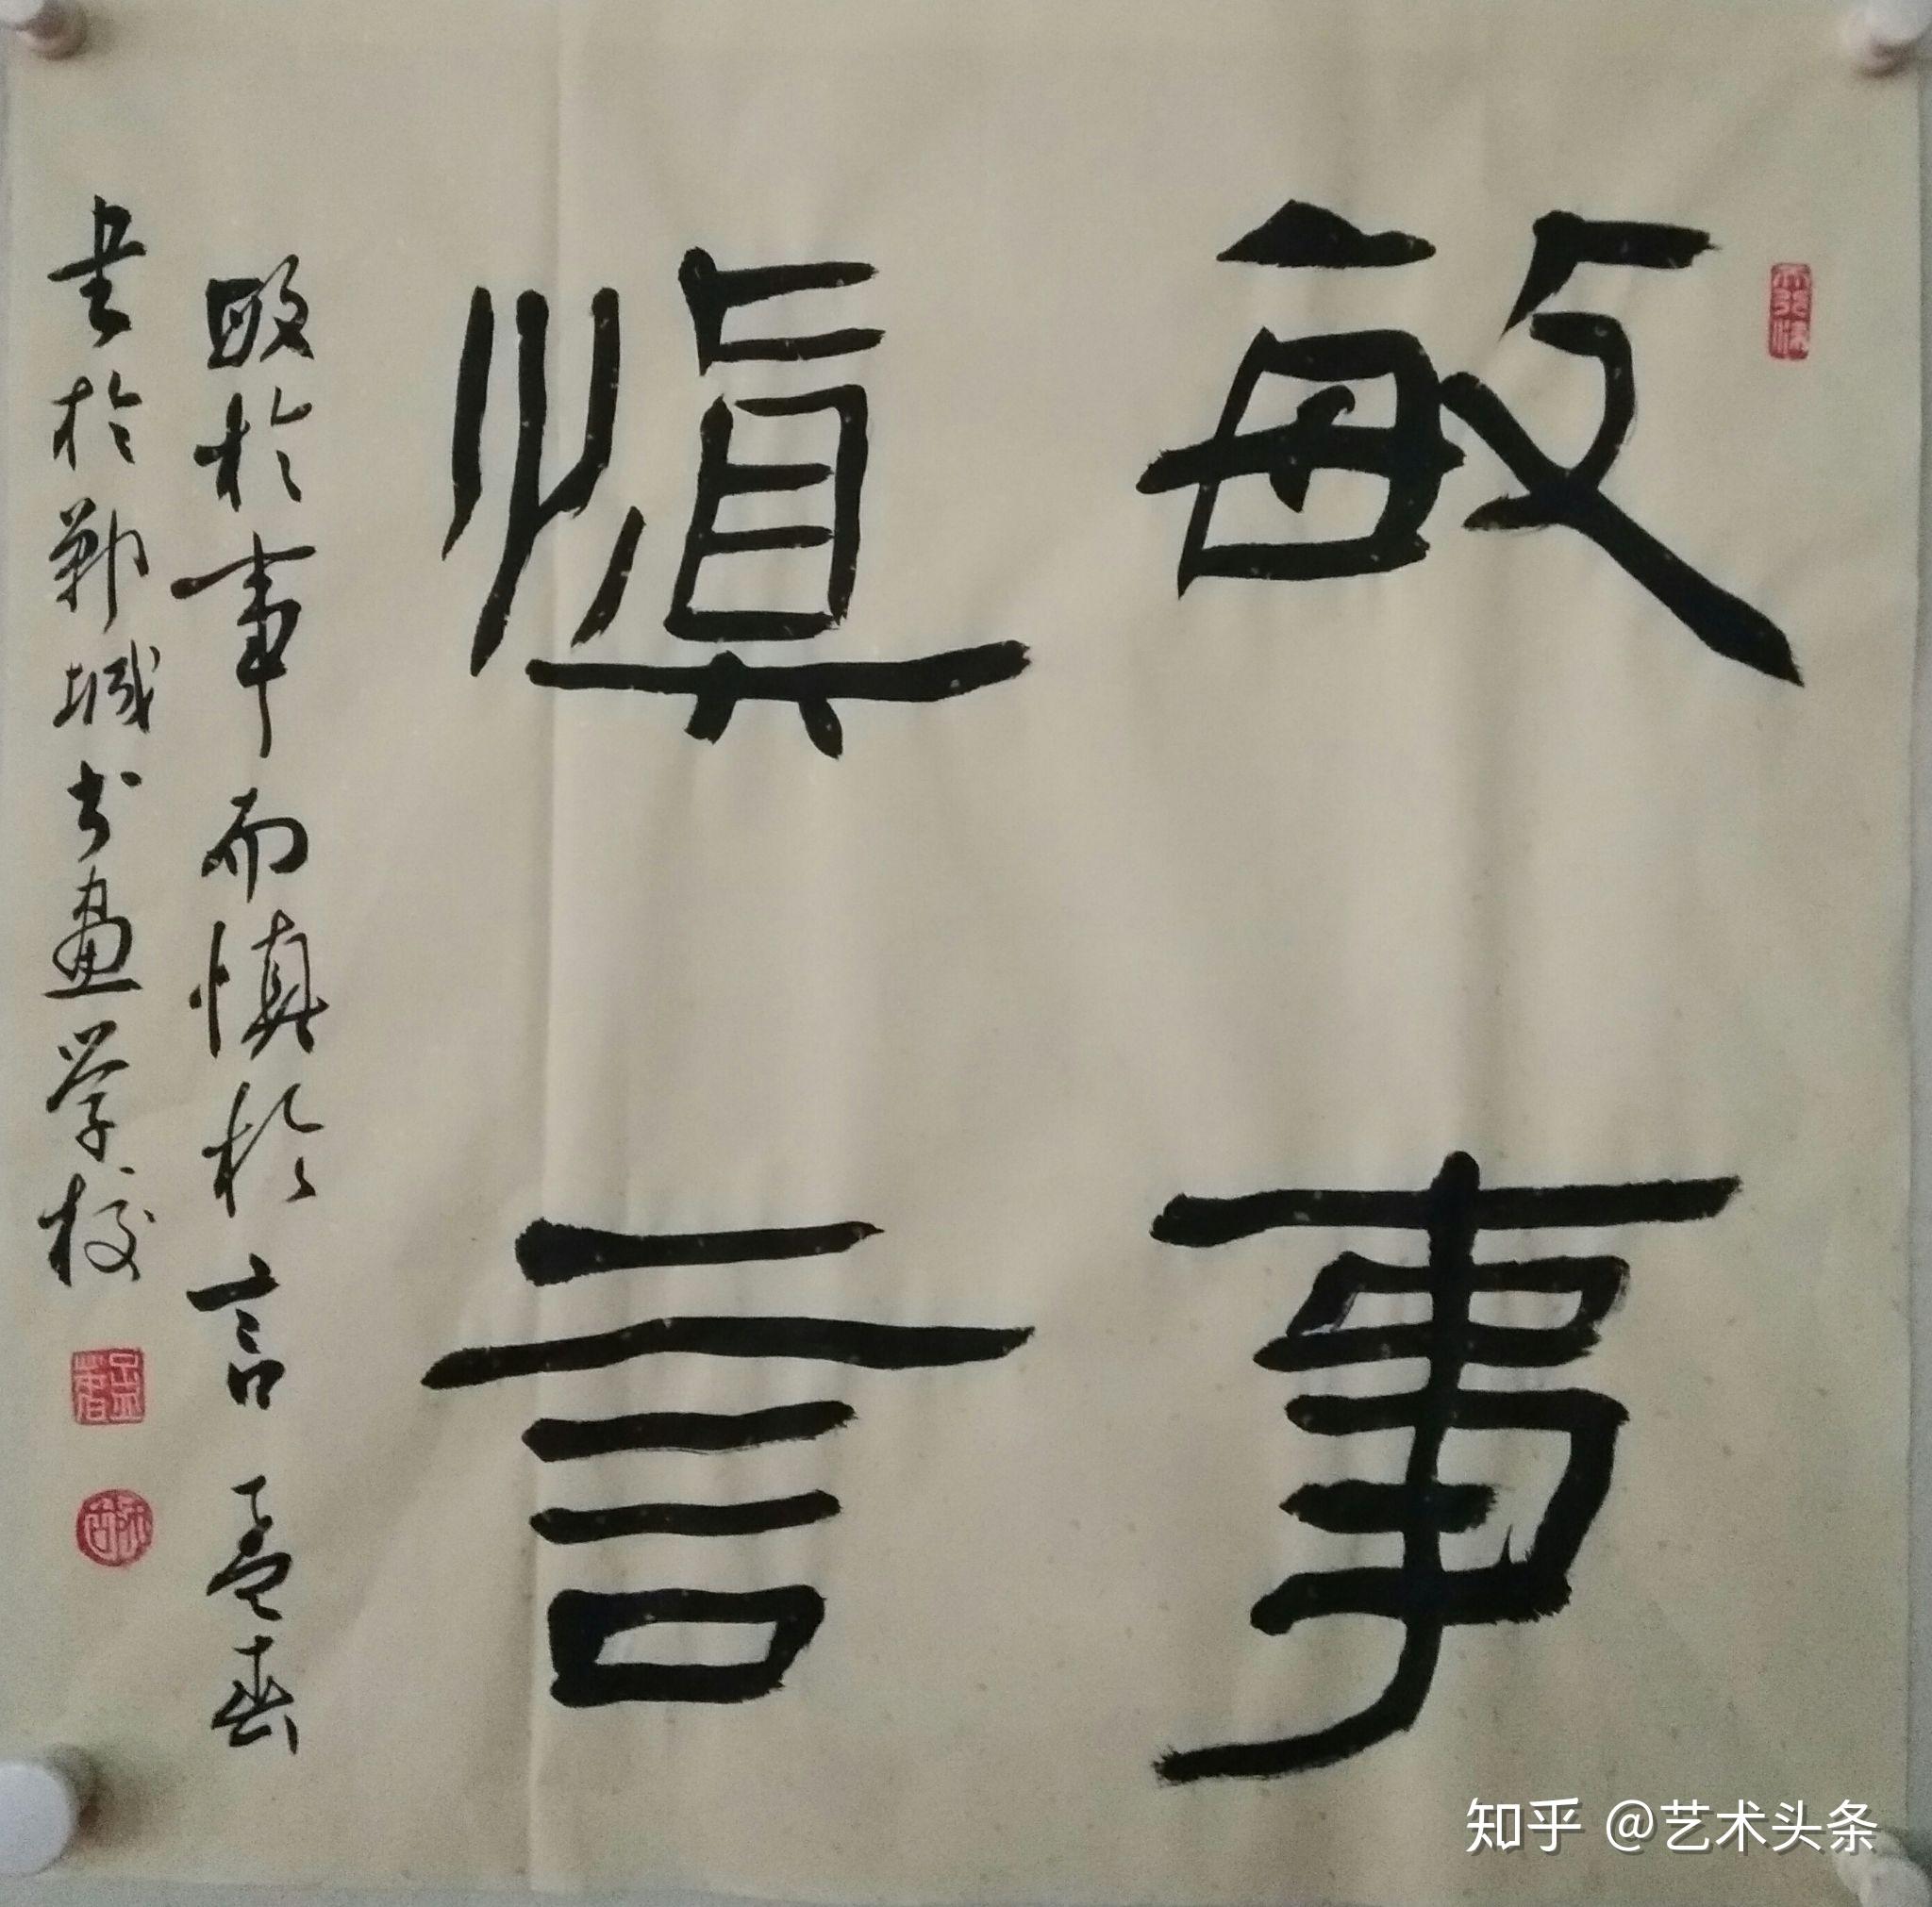 敏事
慎言
敏於事而慎於言 孟春
書於鄴城书畫学校
知乎 @艺术头条